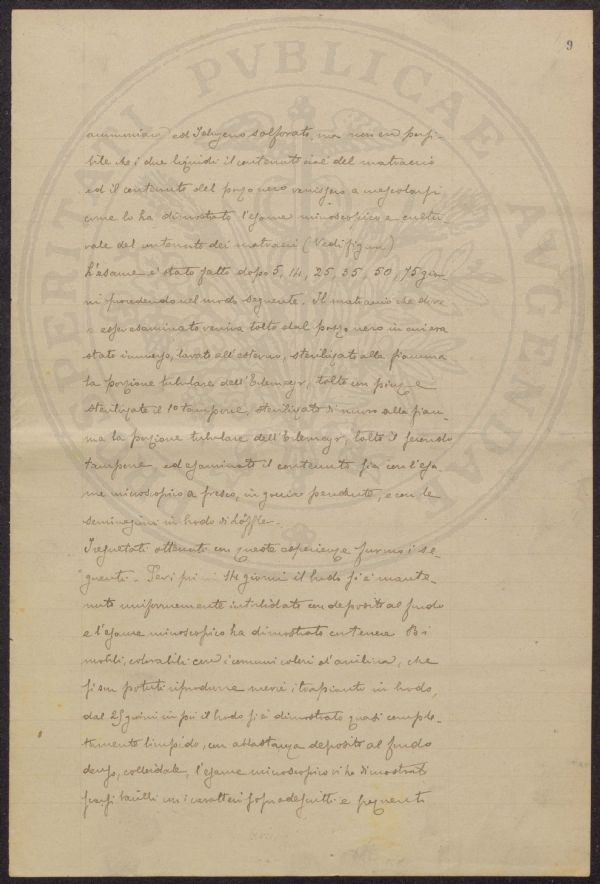 9
ammoniaca ed Idrogeno solforato, ma non era possi-
bile che i due liquidi il contenuto cioè del matraccio
ed il contenuto del pozzo nero venissero a mescolarsi
come lo ha dimostrato l'esame microscopico e cultu-
rale del contenuto dei matracci (Vedi figura)
L'esame è stato fatto dopo 5, 14, 25, 35, 50, 75 gior-
ni procedendo nel modo seguente. Il matraccio che dove-
a esser esaminato veniva tolto dal pozzo nero in cui era
stato immerso, lavato all'esterno, sterilizzato alla fiamma
la porzione tubulare dell'Erlemeyr, tolto con pinze
sterilizzate il 1º tampone, sterilizzato di nuovo alla fiam-
ma la porzione tubulare dell'Erlemeyr, tolto il secondo
tampone, ed esaminato il contenuto sia con l'esa-
me microscopico a fresco, in goccia pendente, e con le
seminagioni in brodo di Löffler.
I resultati ottenuti con queste esperienze furono i se-
guenti. Per i primi 14 giorni il brodo si è mante-
nuto uniformemente intorbidato con deposito al fondo
e l'esame microscopico ha dimostrato contenere B.i
mobili, colorabili con i comuni colori d'anilina, che
si son potuti riprodurre mercè i trapianti in brodo,
dal 25 giorni in più il brodo si è dimostrato quasi comple-
tamente limpido, con abbastanza deposito al fondo
denso, colloidale, l'esame microscopico vi ha dimostrato
scarsi bacilli con i caratteri sopradescritti e frequenti
PVBLICAE
AVGENDAE